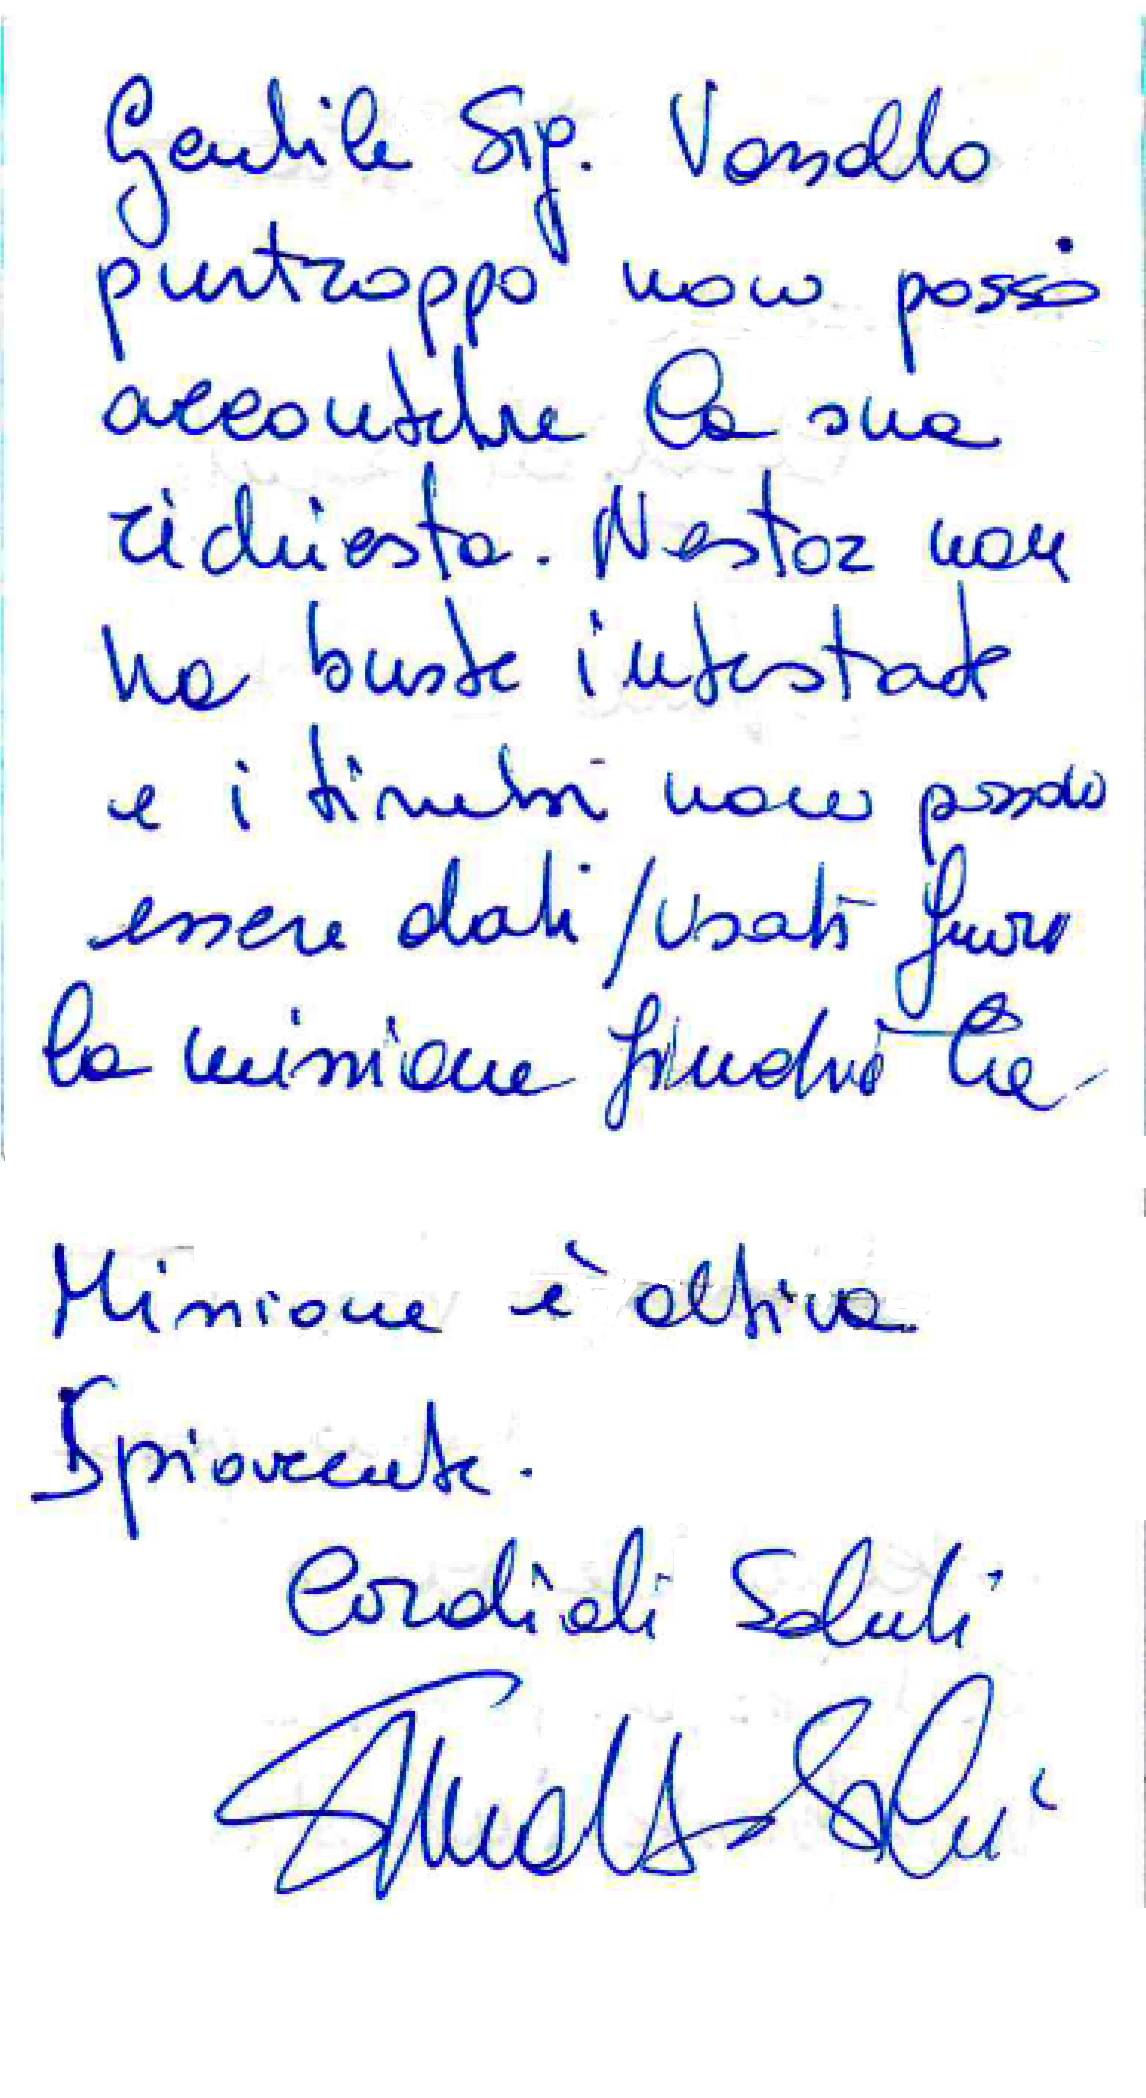 Gentile Sig. Vassallo
purtroppo non posso
accontentare la sua
richiesta. Nestor non
ha buste intestate
e i timbri non possono
essere dati/usati fuori
la missione finché la
Missione è attiva
Cordiali Saluti